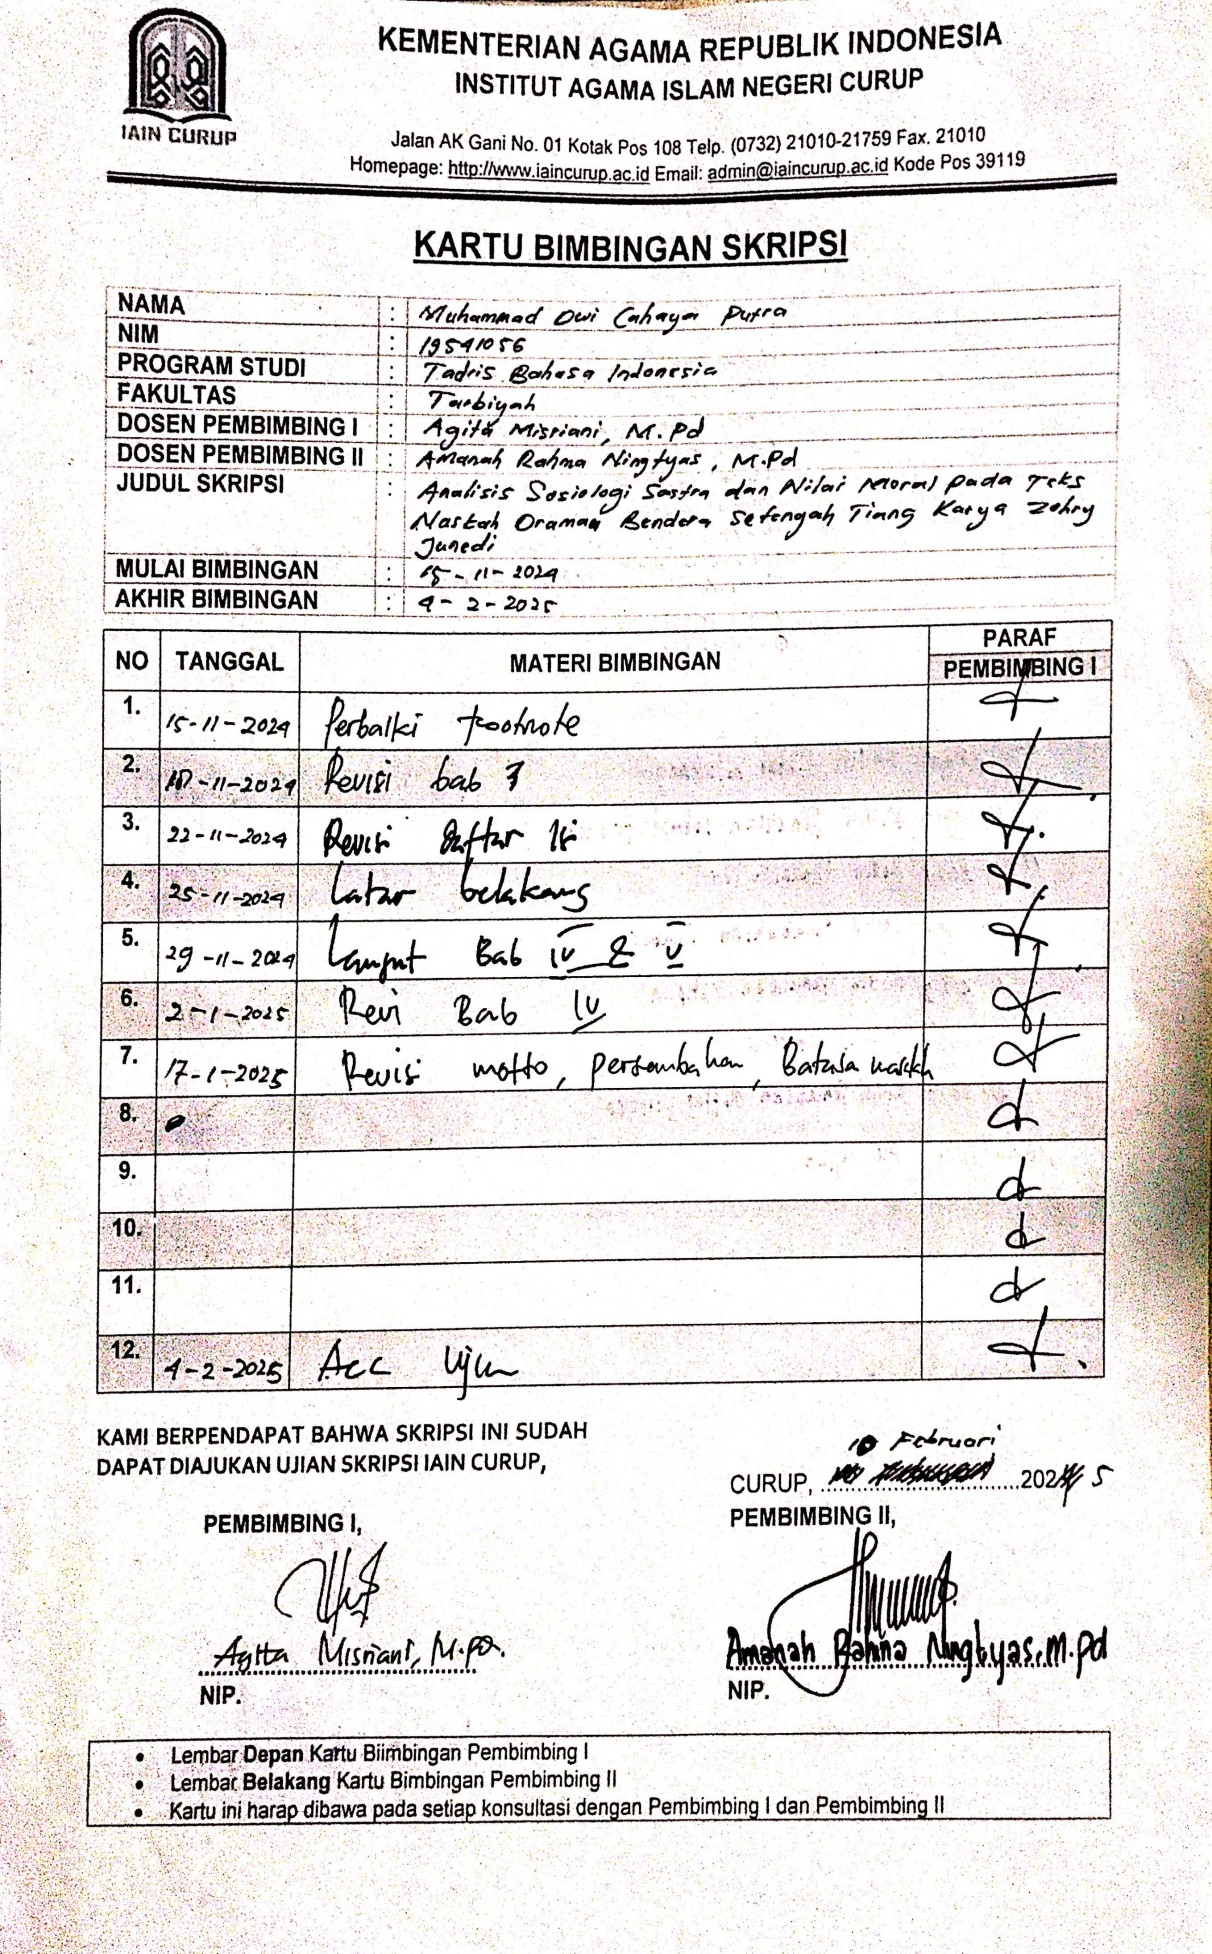 KEMENTERIAN AGAMA REPUBLIK INDONESIA
INSTITUT AGAMA ISLAM NEGERI CURUP
IAIN CURUP
Jalan AK Gani No. 01 Kotak Pos 108 Telp. (0732) 21010-21759 Fax. 21010
Homepage: http://www.iaincurup.ac.id Email: admin@iaincurup.ac.id Kode Pos 39119
KARTU BIMBINGAN SKRIPSI
NAMA : Muhammad Dwi Cahaya Putra
NIM : 19541056
PROGRAM STUDI : Tadris Bahasa Indonesia
FAKULTAS : Tarbiyah
DOSEN PEMBIMBING I : Agita Misriani, M.Pd
DOSEN PEMBIMBING II : Amanah Rahma Ningtyas, M.Pd
JUDUL SKRIPSI : Analisis Sosiologi Sastra dan Nilai Moral pada Teks
Naskah Dramaa Bendera Setengah Tiang Karya Zohry
Junedi
MULAI BIMBINGAN : 15-11-2024
AKHIR BIMBINGAN : 4-2-2025
NO TANGGAL MATERI BIMBINGAN PARAF
PEMBIMBING I
1. 15-11-2024 Perbaiki footnote
2. -11-2024 Revisi bab 3
3. 22-11-2024 Revisi daftar Isi
4. 25-11-2024 Latar belakang
5. 29-11-2024 Lanjut Bab IV & V
6. 2-1-2025 Revi Bab IV
7. 17-1-2025 Revisi motto, persembahan,
8.
9.
10.
11.
12. 4-2-2025 Acc Ujian
KAMI BERPENDAPAT BAHWA SKRIPSI INI SUDAH
DAPAT DIAJUKAN UJIAN SKRIPSI IAIN CURUP,
10 Februari
CURUP, 2025
PEMBIMBING I, PEMBIMBING II,
Agita Misriani, M.Pd. Amanah Rahma Ningtyas, M.Pd
NIP. NIP.
• Lembar Depan Kartu Biimbingan Pembimbing I
• Lembar Belakang Kartu Bimbingan Pembimbing II
• Kartu ini harap dibawa pada setiap konsultasi dengan Pembimbing I dan Pembimbing II